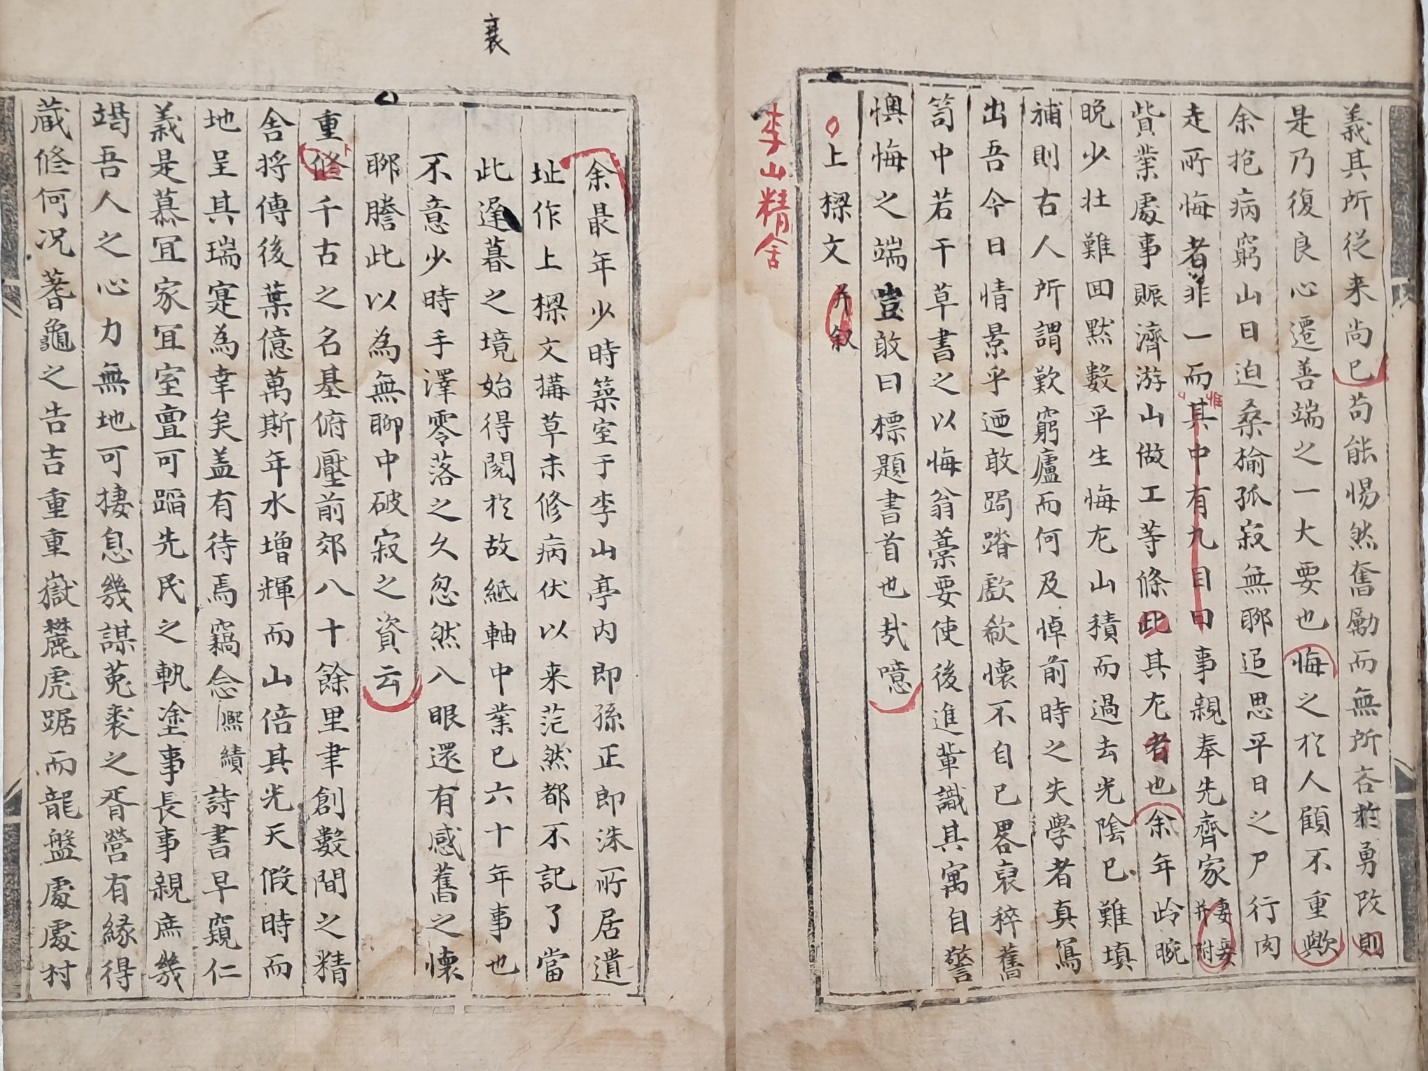 義其所従来尚已苟能惕然奮勵而無所吝於勇改則
是乃復良心遷善端之一大要也悔之於人顧不重歟
余抱病窮山日迫桑揄孤寂無聊追思平日之尸行肉
走所悔者非一而其中有九目曰事親奉先齊家妻妾并附
惟
貲業處事賑濟游山做工等條此其尤者也余年岭晼
晩少壮難回黙數平生悔尤山積而過去光陰已難填
補則古人所謂歎窮廬而何及悼前時之失學者真寫
出吾今日情景乎迺敢跼蹐歔欷懷不自已畧裒稡舊
笥中若干草書之以悔翁藁要使後進軰識其寓自警
懊悔之端豈敢曰標題書首也㢤噫
上樑文并叙
李山精舍
衰
余最年少時築室于李山亭内即孫正郎洙所居遺
址作上樑文搆草未修病伏以来茫然都不記了當
此遲暮之境始得閲於故紙軸中業已六十年事也
不意少時手澤零落之久忽然入眼還有感舊之懷
聊謄此以為無聊中破寂之資云
重修千古之名基俯壓前郊八十餘里聿創數間之精
舍将傳後葉億萬斯年水增輝而山倍其光天假時而
地呈其瑞寔為幸矣盖有待焉竊念熈績詩書早窺仁
義是慕冝家冝室亶可蹈先民之軌塗事長事親庶幾
竭吾人之心力無地可捿息幾謀菟裘之胥營有縁得
蔵修何况蓍龜之告吉重重嶽麓虎踞而龍盤處處村